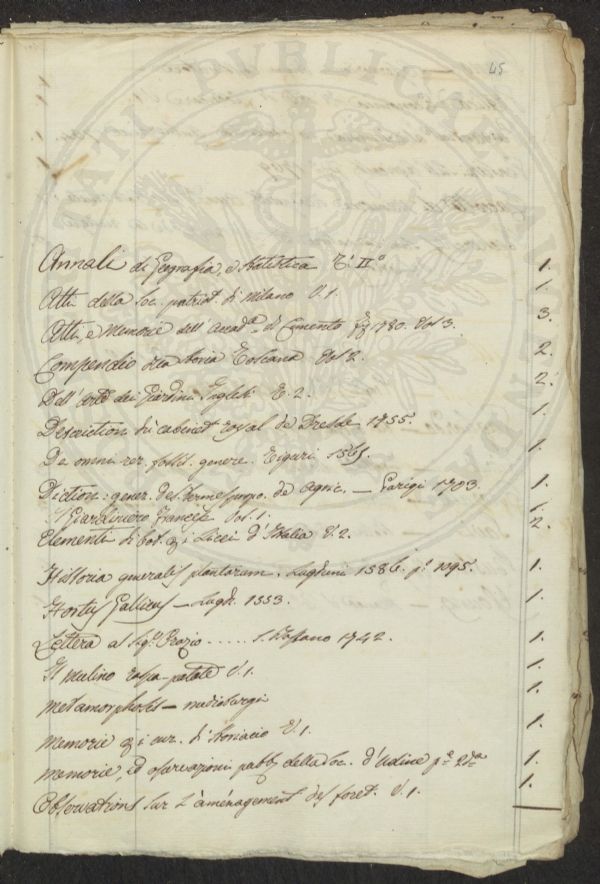 45
Annali di Geografia, e Statistica T. II° 1.
Atti della Soc. patriot. di Milano V. 1. 1.
Atti, e Memorie dell' Accad.ª di Cimento 1780. Vol 3. 3.
Compendio della Storia Toscana Vol 2. 2.
Dell' Arte dei Giardini Inglesi T. 2. 2.
Description du cabinet royal de Dresde 1755. 1.
De omni rer. fossil. genere. Tiguri 1565. 1.
Diction: gener. des termes propr. de Agric. — Parigi 1703. 1.
Il Giardiniero Francese Vol. 1. 1.
Elementi di bot. p. i Licei d'Italia V. 2. 2.
Historia generalis plantarum. Lugduni 1586. p. 1095. 1.
Hortus Gallicus — Lugd. 1533. 1.
Lettera al Sig.r Orazio ..... 1742. 1.
Il mulino raspa-patate V. 1. 1.
Metamorphosis — 1.
Memorie p. i cur. di V. 1. 1.
Memorie, ed osservazioni pubb. della Soc. d'Udine pª 2dª 1.
Observations sur l'aménagement des foret. V. 1. 1.